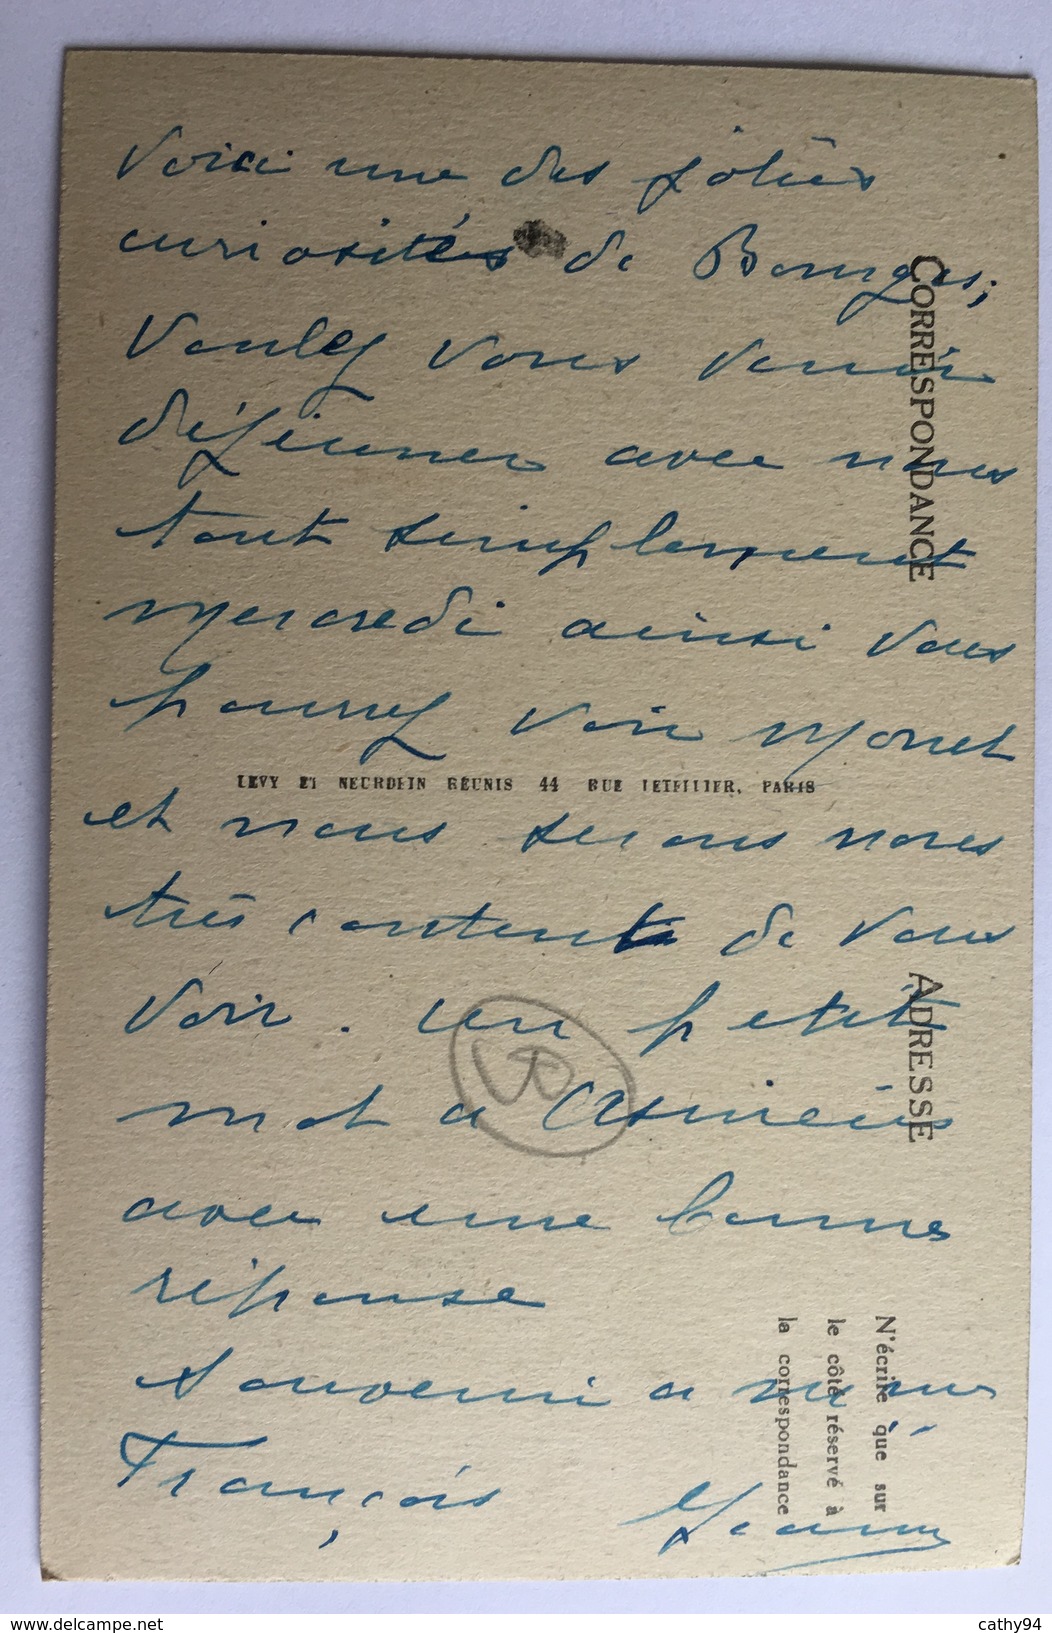 Voici une des jolies
curiosités de Bourges;
Voulez vous venir
déjeuner avec nous
tout simplement
mercredi ainsi vous
pourrez voir Monet
et nous serons nous
très content de vous
voir. un petit
mot a Asnieres
avec une bonne
réponse
Souvenir a
François
CORRESPONDANCE
ADRESSE
LEVY ET NEURDEIN REUNIS 44 RUE LETELLIER, PARIS
N'écrire que sur
le côté réservé à
la correspondance
cathy94